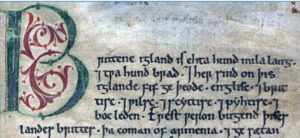 Brittene igland is ehta hund mila lang.
⁊ tƿa hund brad. ⁊ her sind on þis
iglande fif geþeode. englisc. ⁊ brit
tisc. ⁊ ƿilsc. ⁊ scyttisc. ⁊ pyhtisc. ⁊
boc leden. Erest ƿeron bugend þises
landes brittes. þa coman of armenia. ⁊ gesætan